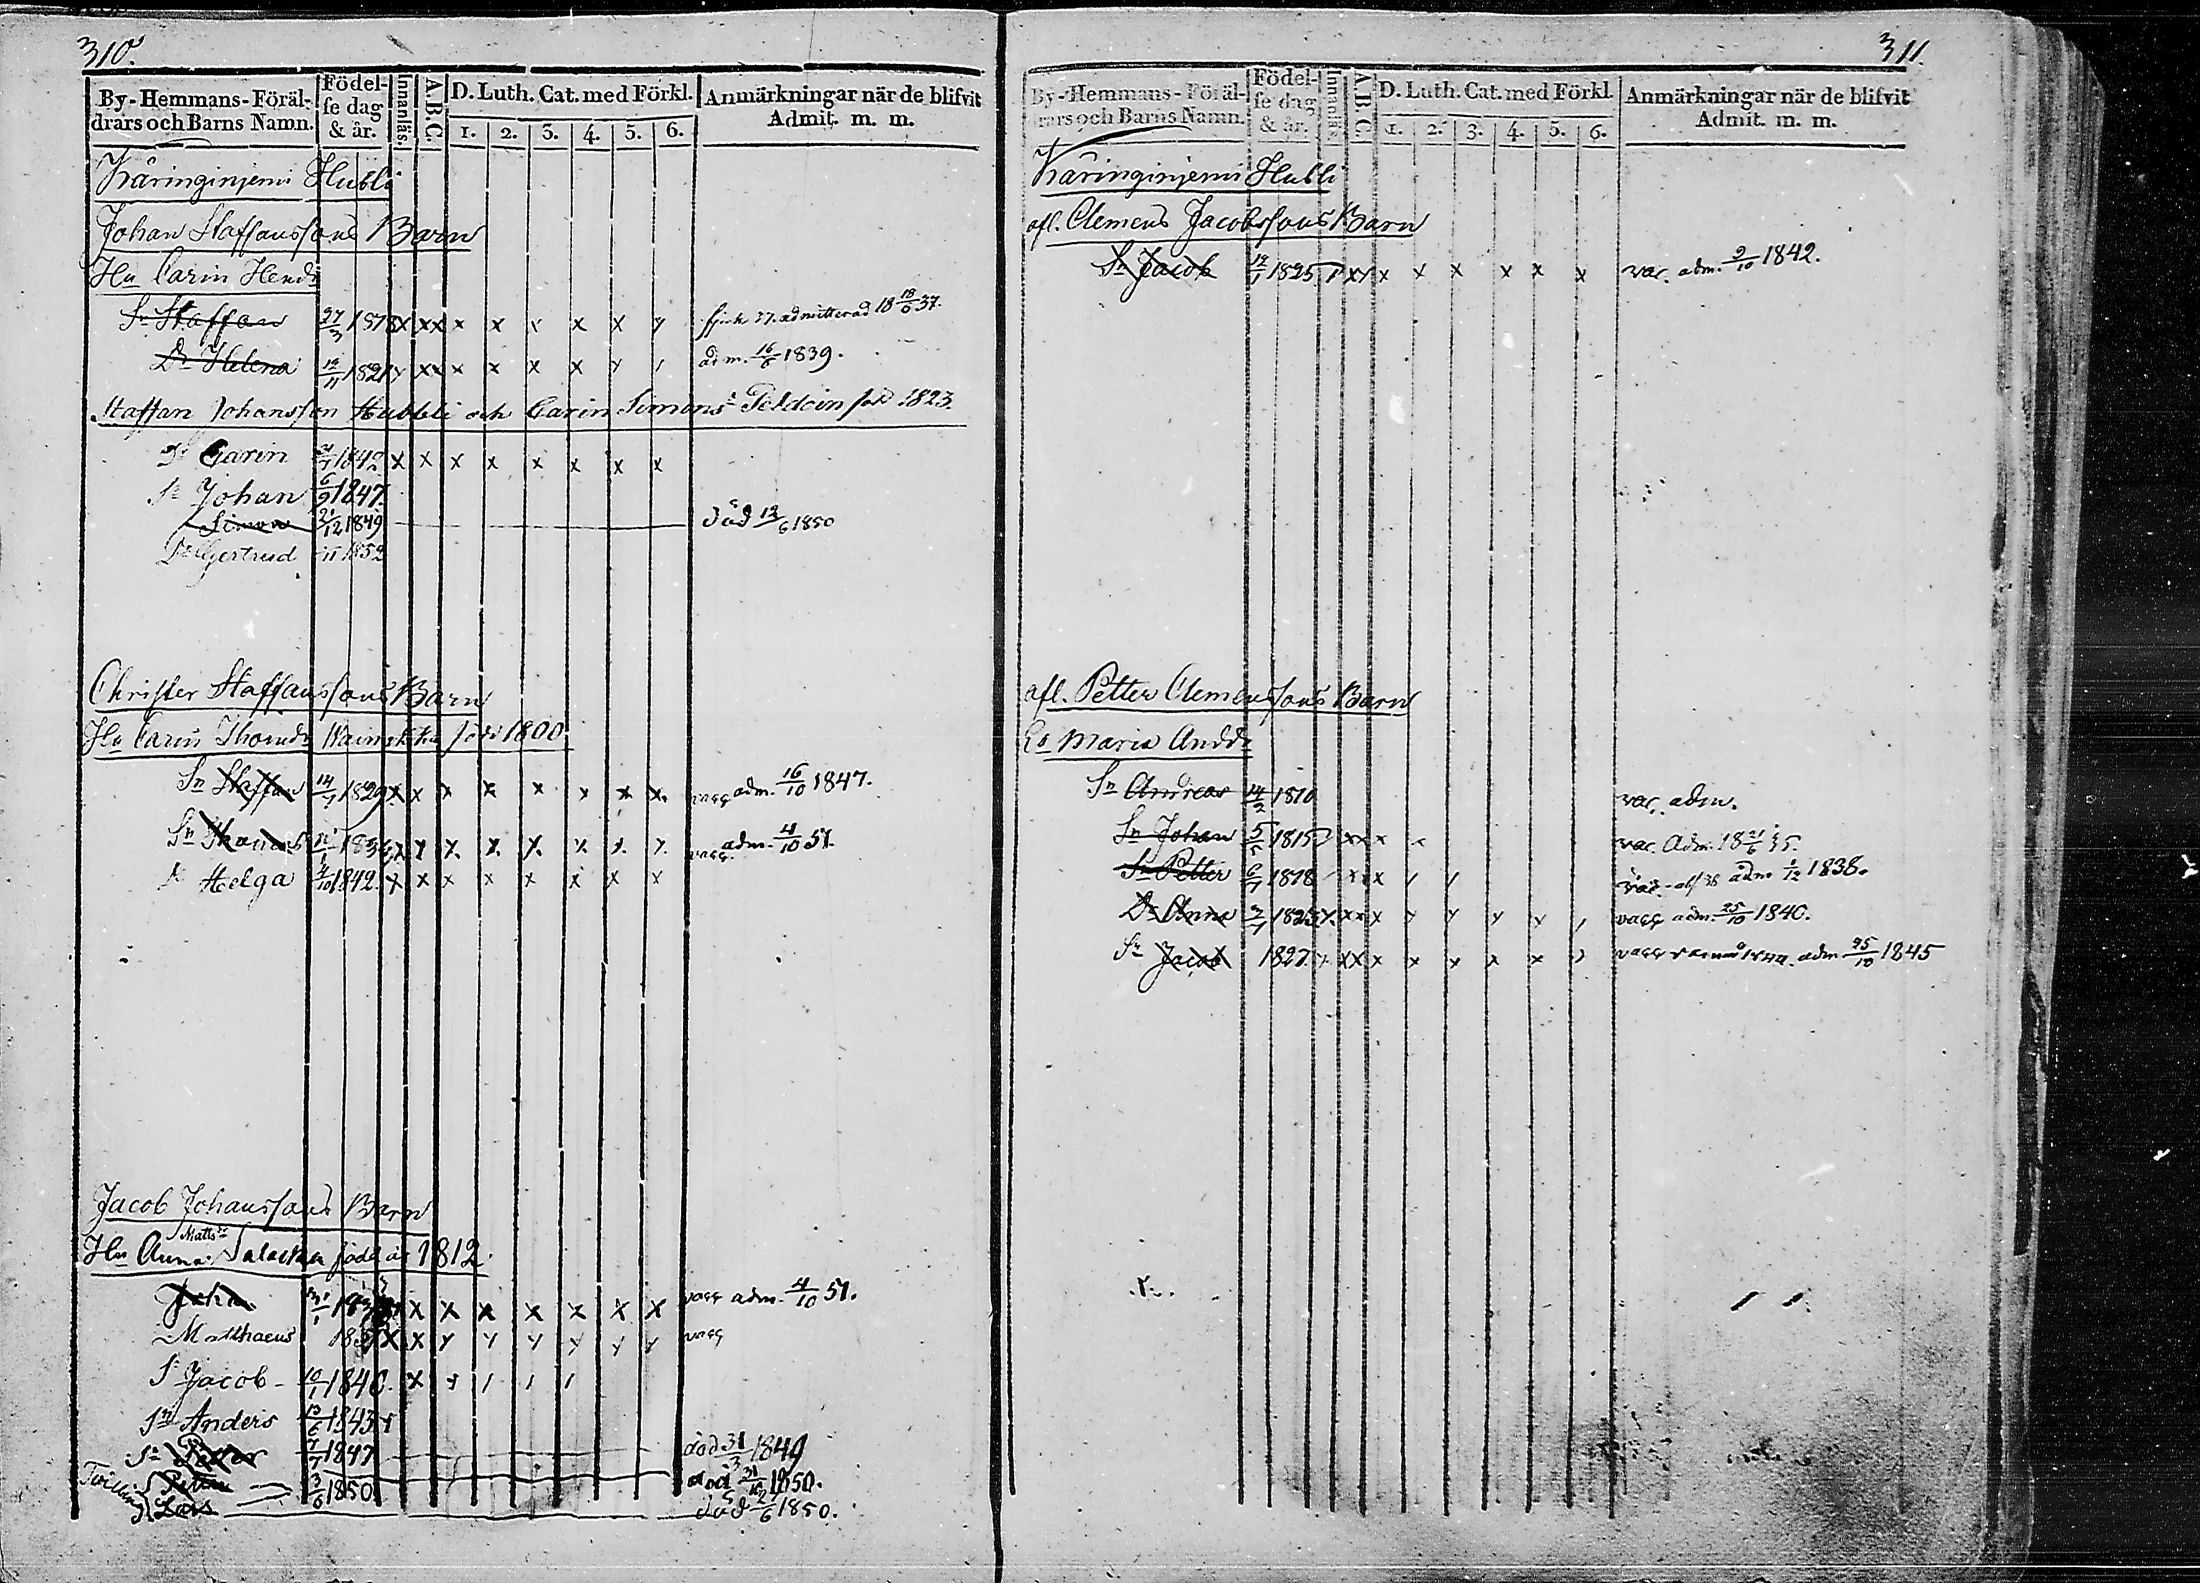 310.
By-Hemmans-Föräl-
drars och Barns Namn.
Födel-
se dag
& år.
Innanläs.
A.B.C.
D. Luth. Cat. med Förkl.
1. 2. 3. 4. 5. 6.
Anmärkningar när de blifvit
Admit. m. m.
Käringinjemi Hubli
Johan Staffanssons Barn
Hu Carin Hendr
Sn Staffan 27/3 1818 x xx x x x x x y admitterad 18 18/6 37.
Dr Helena 12/11 1821 y xx x x x x y adm. 16/6 1839.
Staffan Johansson Hubbli och Carin Simons Peldoin 1823.
Dr Carin 2/7 1842 x x x x x x x x
Sn Johan 6/9 1847.
Simon 21/12 1849 död 12/6 1850
Dr Gjertrud 11 1852
Christer Staffanssons Barn
Hu Carin Thomdr född 1800
Sn Staffan 14/7 1829 x x x x x x x x. vacc adm. 16/10 1847.
Sn Thomas 1834 x x x x x x x x vacc. adm. 4/10 51.
Dr Helga 4/10 1842. x x x x x x x x
Jacob Johanssons Barn
Matts
Hu Anna Salackka född år 1812.
Joha 31/1 x x x x x x x vacc adm. 4/10 51.
Matthaeus x x y y y y y y vacc
Sn Jacob - 10/1 1840. x y 1 1 1 1
Sn Anders 13/6 1843
Sn Petter 7/7 1847 död 31/3 1849
Twilling Petter 3/6 1850 död 31/12 1850.
Lars död 2/6 1850.
311.
By-Hemmans-Föräl-
drars och Barns Namn.
Födel-
se dag
& år.
Innanläs.
A.B.C.
D. Luth. Cat. med Förkl.
1. 2. 3. 4. 5. 6.
Anmärkningar när de blifvit
Admit. m. m.
Käringinjemi Hubli
afl. Clemens Jacobssons Barn
Sn Jacob 12/1 1825 x x x x x x x x vac. adm. 9/10 1842.
afl. Petter Clemenssons Barn
Maria Anddr
Sn Andreas 14/2 1810 vac. adm.
Sn Johan 5/5 1815 x x x vac. Adm. 18 21/6 35.
Sn Petter 6/7 1818 x x x 1 1 vac. adm 1/12 1838.
Dr Anna 3/7 1823 x. x x x y y y y vacc adm. 25/10 1840.
Sn Jacob 1827 x x x x x x x x vacc adm 25/10 1845